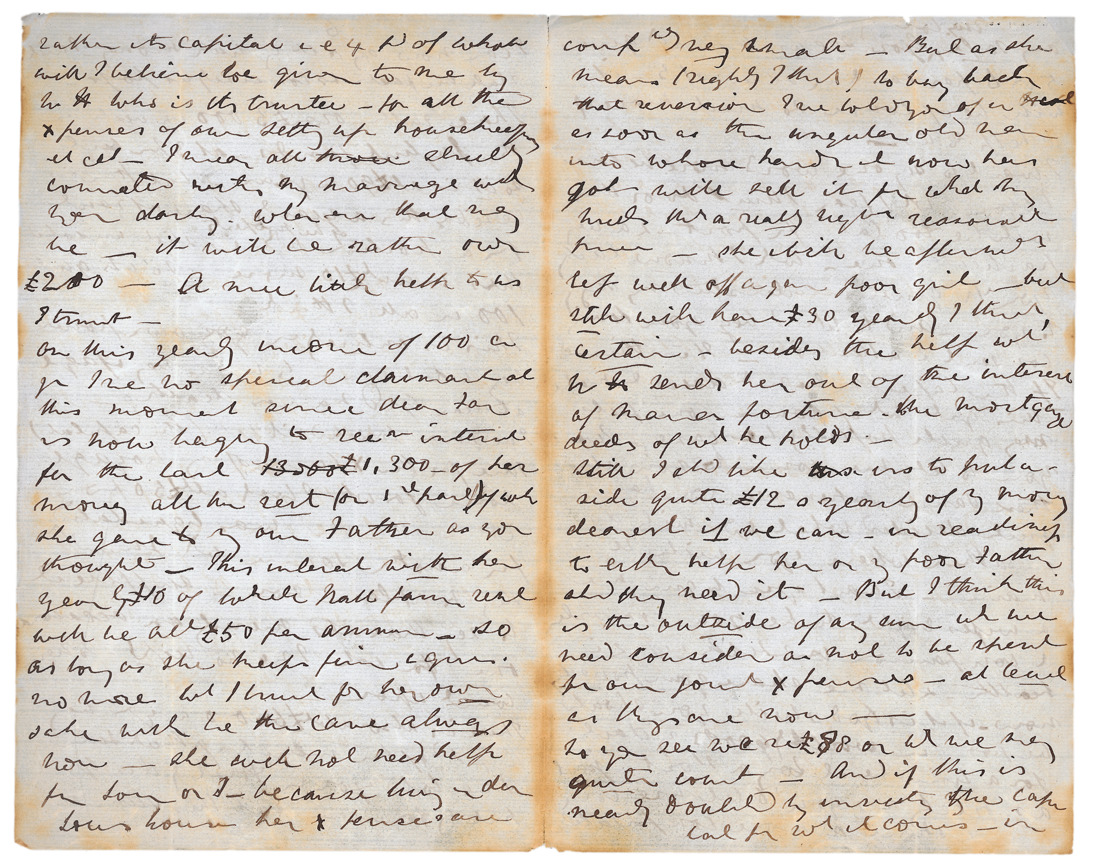 rather its capital i e 4 p of whole
will I believe be given to me by
W H who is its trustee – for all the
xpenses of our setting up housekeeping
et cet – I mean all those strictly
connected with my marriage with
you darling. whenever that may
be — it will be rather over
£200 — A nice little help to us
I trust –
on this yearly income of 100 or
so I've no special claimant at
this moment since dear Fan
is now begging to receive interest
for the last £1,300 – of her
money all the rest (or 1st part) of wh
she gave to my own Father as you
thought – This interest with her
yearly £10 of White Hall farm rent
will be all £50 per annum – so
as long as she keeps firm & gives
no more wh I trust for her own
sake will be the case always
now – she will not need help
fr Lou or I – because living in dear
Lous house her xpenses are
comp ly very small – But as she
means (rightly I think) to buy back
that reversion I've told you of
as soon as the singular old man
into whose hands it now has
got will sell it for what they
reasonable
she will be afterwards
left well off again poor girl – but
still will have £30 yearly I think,
certain – besides the help wh
W H sends her out of the interest
of Mamas fortune. the mortgage
deeds of wh he holds. –
still I shd like us to put a-
side quite £12 a yearly of my money
dearest if we can – in readiness
to either help her or my poor Father
shd they need it – But I think this
is the outside of any sum wh we
need consider as not to be spent
for our joint xpenses – at least
as things are now —
so you see we £88 or wh we may
quite count – And if this is
nearly doubled by investing the capi
tal for wh it comes – in